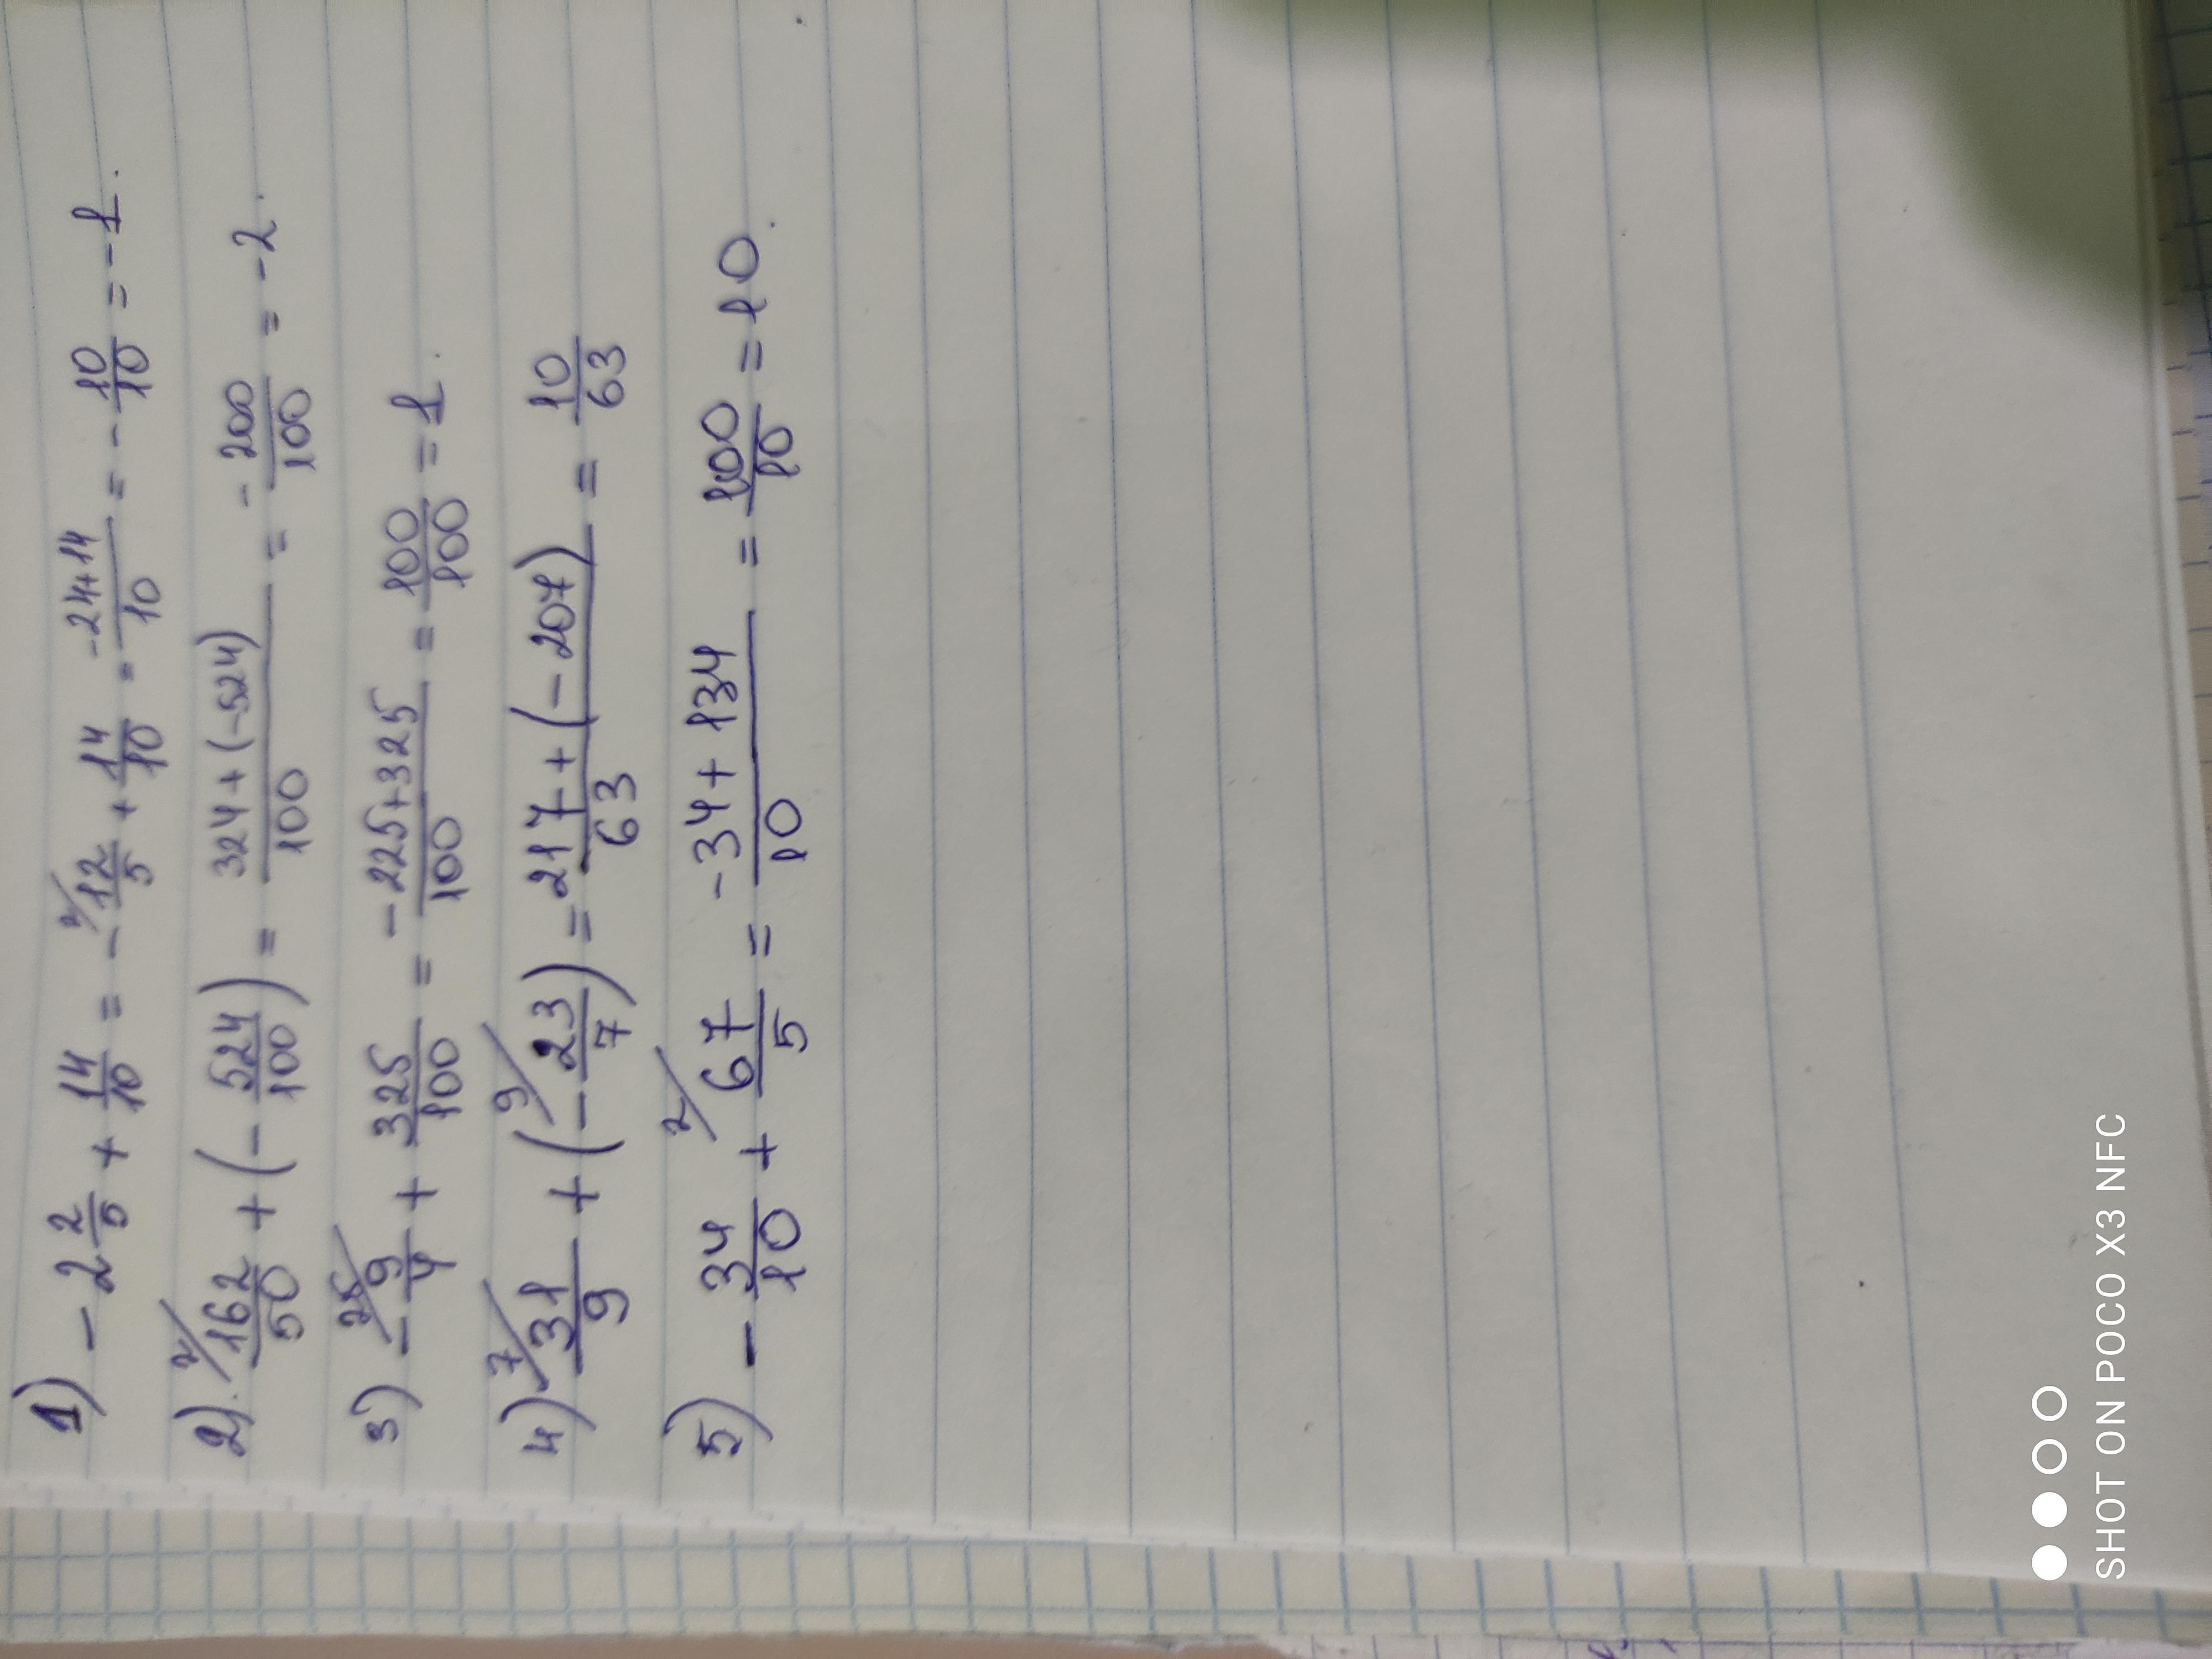 1) -2 2/5 + 14/10 = - 2/ 12/5 + 14/10 = (-24+14)/10 = - 10/10 = -1.
2). 2/ 162/50 + (- 524/100) = (324+(-524))/100 = - 200/100 = -2.
3) - 25/ 9/4 + 325/100 = (-225+325)/100 = 100/100 = 1.
4) 7/ 31/9 + (- 9/ 23/7) = (217+(-207))/63 = 10/63
5) - 34/10 + 2/ 67/5 = (-34+134)/10 = 100/10 = 10.
SHOT ON POCO X3 NFC